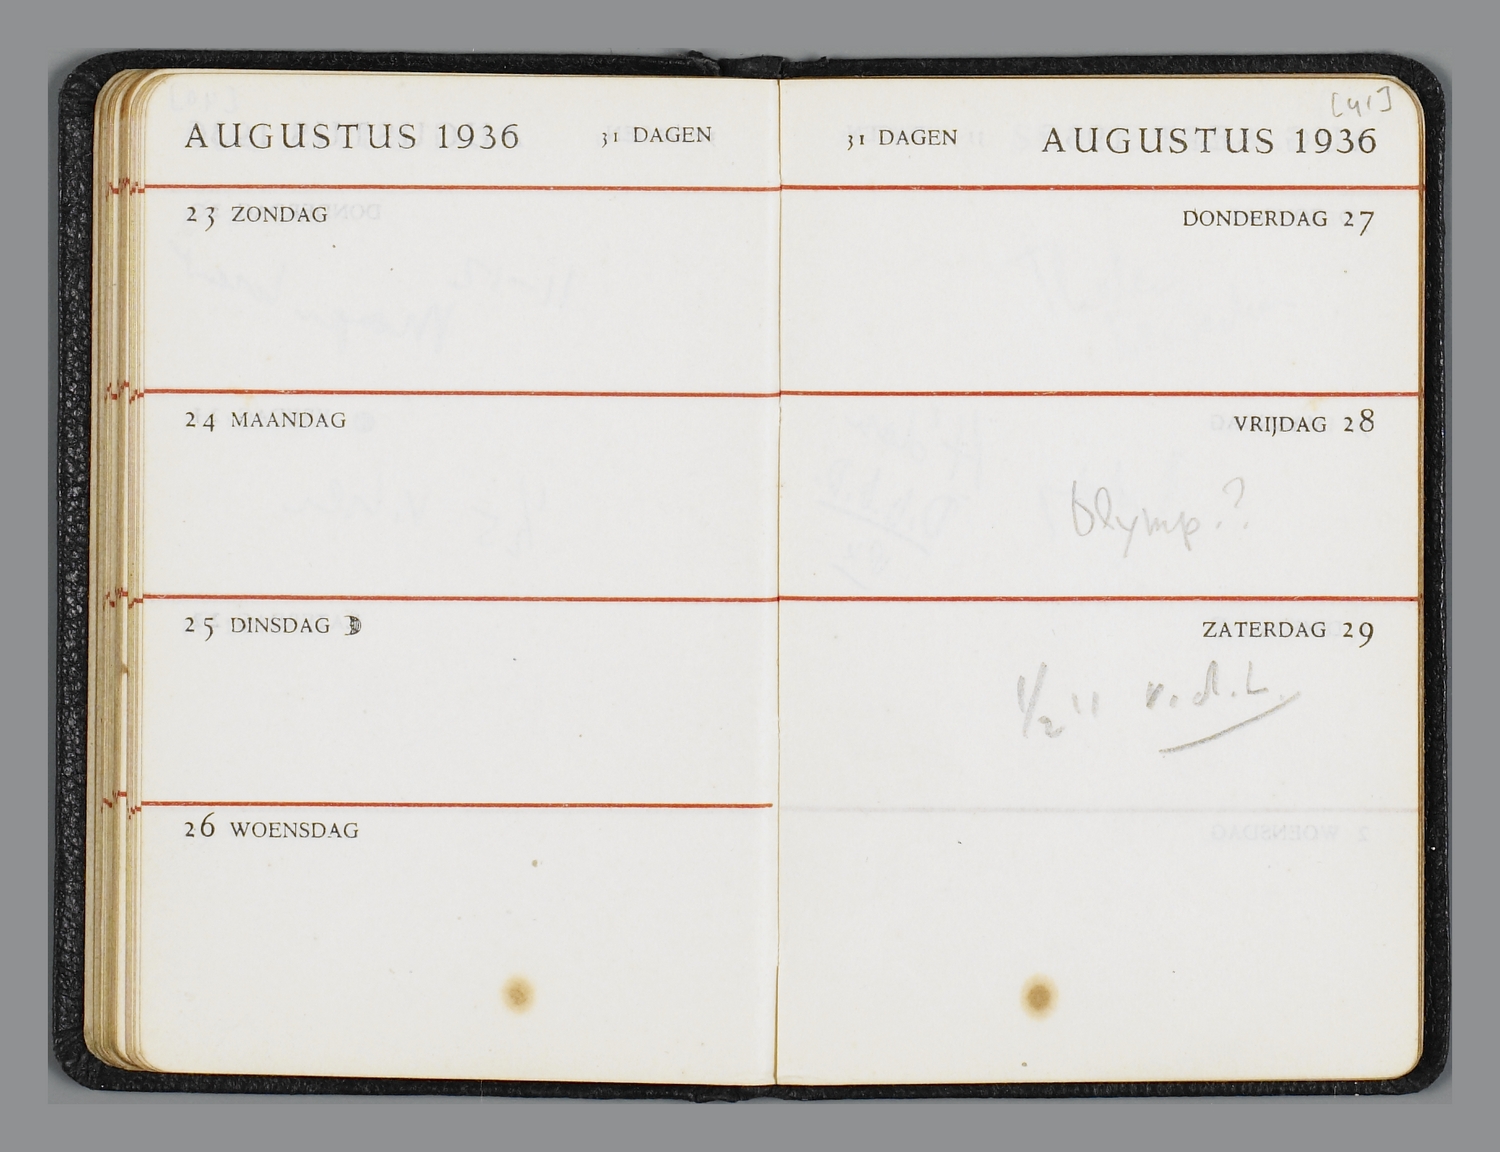 AUGUSTUS 1936 31 DAGEN
23 ZONDAG
24 MAANDAG
25 DINSDAG
26 WOENSDAG
[41]
31 DAGEN AUGUSTUS 1936
DONDERDAG 27
VRIJDAG 28
Olymp.?
ZATERDAG 29
1/2 11 v.d.L.